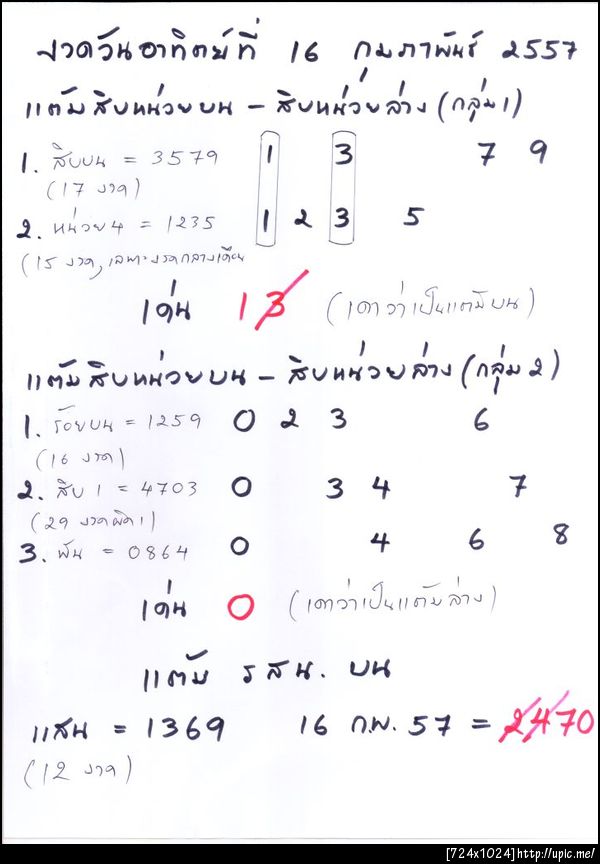 งวดวันอาทิตย์ที่ 16 กุมภาพันธ์ 2557
แต้มสิบหน่วยบน - สิบหน่วยล่าง (กลุ่ม 1)
1. สิบบน = 3579 1 3 7 9
(17 งวด)
2. หน่วย 4 = 1235 1 2 3 5
(15 งวด, เฉพาะงวดกลางเดือน
เด่น 1 3 (เดาว่าเป็นแต้มบน)
แต้มสิบหน่วยบน - สิบหน่วยล่าง (กลุ่ม 2)
1. ร้อยบน = 1259 0 2 3 6
(16 งวด)
2. สิบ 1 = 4703 0 3 4 7
(29 งวดผิด 1)
3. พัน = 0864 0 4 6 8
เด่น 0 (เดาว่าเป็นแต้มล่าง)
แต้ม รสน. บน
แสน = 1369 16 ก.พ. 57 = 2470
(12 งวด)
[724x1024]http://upic.me/